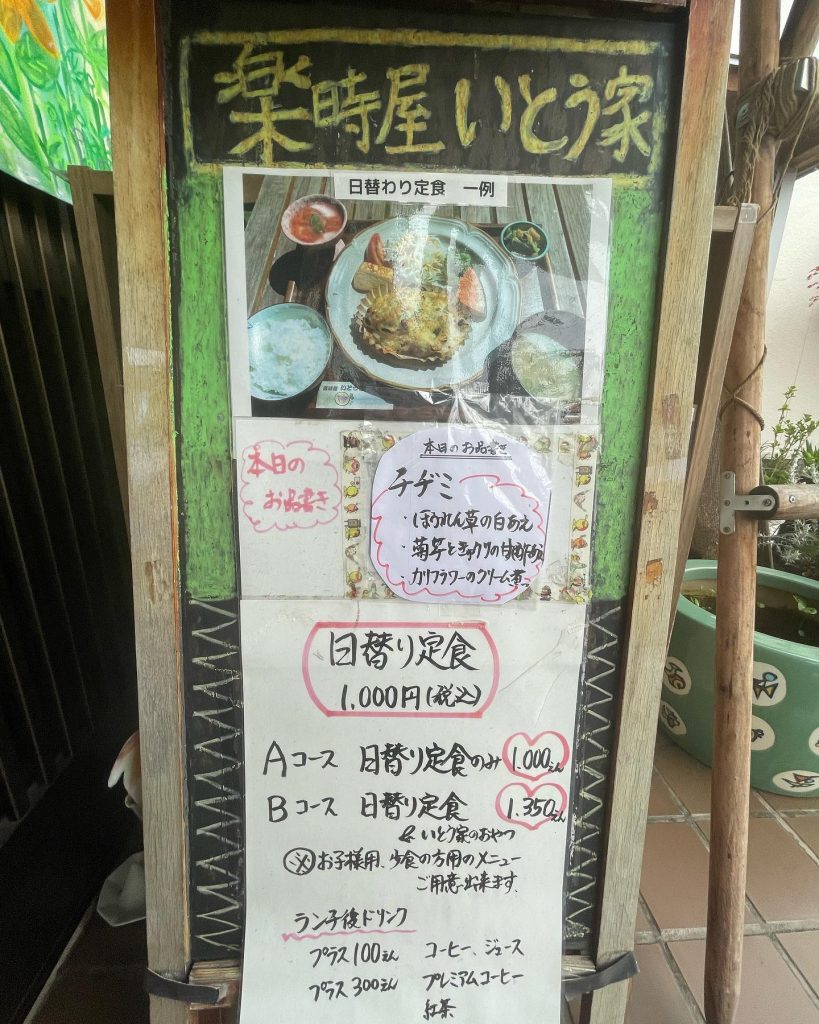 楽時屋 いとう家
日替わり定食 一例
楽時屋 いとう家
本日の
お品書き
本日のお品書き
チヂミ
・ほうれん草の白あえ
・菊芋ときゅうりの甘酢
・カリフラワーのクリーム煮
日替り定食
1,000円(税込)
Aコース 日替り定食のみ 1,000えん
Bコース 日替り定食 1,350えん
& いとう家のおやつ
※お子様用、少食の方用のメニュー
ご用意出来ます、
ランチ後ドリンク
プラス100えん コーヒー、ジュース
プラス300えん プレミアムコーヒー
紅茶